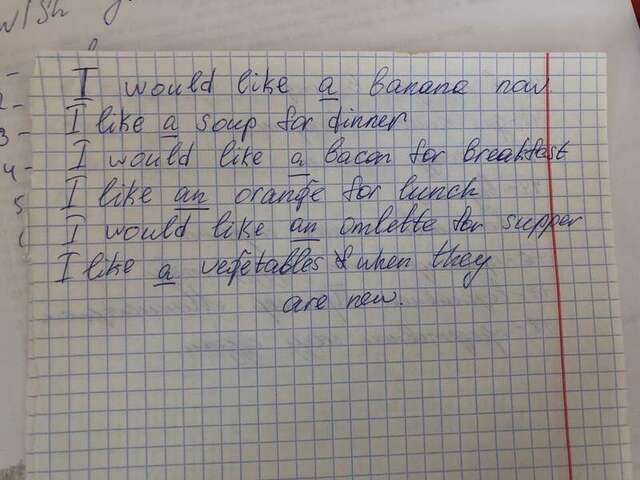 wish
2-
3-
4-
5
I would like a banana now
I like a soup for dinner
I would like a bacon for breakfast
I like an orange for lunch
I would like an omlette for supper
I like a vegetables when they
are new.